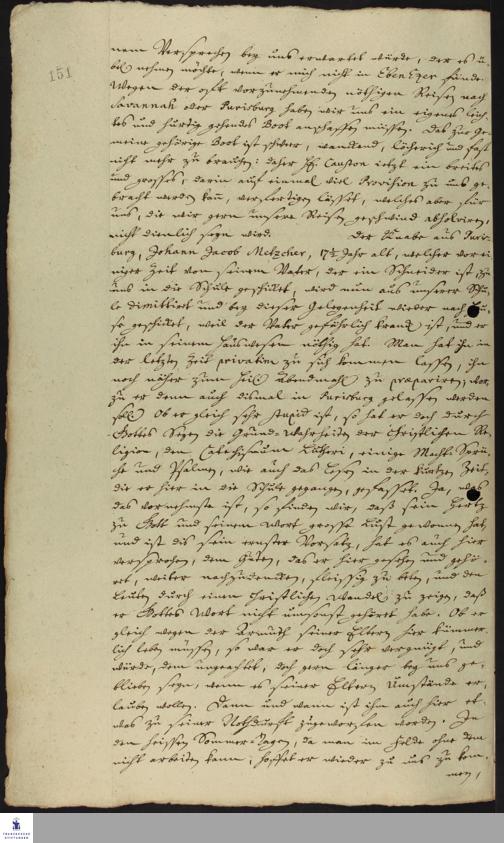 151
nem Versprechen bey uns erwartet würde, der es ü-
bel nehmen möchte, wenn er mich nicht in Ebenezer fünde.
Wegen der oft vorzunehmenden nöthigen Reisen nach
Savannah oder Purisburg haben wir uns ein eigenes leich-
tes und hurtig gehendes Boot anschaffen müssen. Das zur Ge-
meine gehörige Boot ist schwer, wanckend, löcherich und fast
nicht mehr zu brauchen: daher H. Causton jetzt ein breites
und grosses, darin auf einmal viel Provision zu uns ge-
bracht werden kan, verfertigen lässet, welches aber für
uns, die wir gern unsere Reisen geschwind absolviren,
nicht dienlich seyn wird. Der Knabe aus Puris-
burg, Johann Jacob Metzcher, 17½ Jahr alt, welcher vor ei-
niger Zeit von seinem Vater, der ein Schneider ist zu
uns in die Schule geschickt, wird nun aus unserer Schu-
le dimittirt und bey dieser Gelegenheit wieder nach Hau-
se geschickt, weil der Vater gefährlich kranck ist, und er
ihn in seinem Hauswesen nöthig hat. Man hat ihn in
der letzten Zeit privatim zu sich kommen lassen, ihn
noch näher zum Heil. Abendmahl zu præpariren, wo-
zu er denn auch dismal in Purisburg gelassen werden
soll. Ob er gleich sehr stupid ist, so hat er doch durch
Gottes Segen die Grund-Wahrheiten der Christlichen Re-
ligion, den Catechismum Lutheri, einige Macht-Sprü-
che und Psalmen, wie auch das Lesen in der kurtzen Zeit,
die er hier in die Schule gegangen, gefasset. Ja, was
das vornehmste ist, so finden wir, daß sein Hertz
zu Gott und seinem Wort grosse Lust gewonnen hat,
und ist dis sein ernster Vorsatz, hat es auch hier
versprochen, dem Guten, das er hier gesehen und gehö-
ret, weiter nachzudencken, fleissig zu beten, und den
Leuten durch einen Christlichen Wandel zu zeigen, daß
er Gottes Wort nicht umsonst gehöret habe. Ob er
gleich wegen der Armuth seiner Eltern hier kümmer-
lich leben müssen, so war er doch sehr vergnügt, und
würde, dem ungeachtet, doch gern länger bey uns ge-
blieben seyn, wenn es seiner Eltern Umstände er-
lauben wollen. Dann und wann ist ihm auch hier et-
was zu seiner Nothdurft zugeworfen worden. In
den heissen Sommer-Tagen, da man im Felde ohne dem
nicht arbeiten kann, hoffet er wieder zu uns zu kom-
men,
FRANCKESCHE
STIFTUNGEN